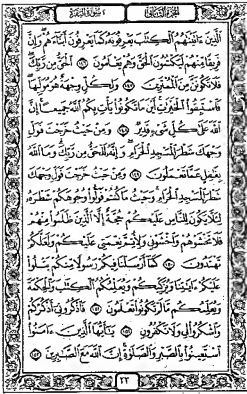 الجزء الثاني سورة البقرة
الَّذِينَ ءَاتَيْنَٰهُمُ الْكِتَٰبَ يَعْرِفُونَهُ كَمَا يَعْرِفُونَ أَبْنَاءَهُمْ وَإِنَّ
فَرِيقًا مِّنْهُمْ لَيَكْتُمُونَ الْحَقَّ وَهُمْ يَعْلَمُونَ ١٤٦ الْحَقُّ مِن رَّبِّكَ
فَلَا تَكُونَنَّ مِنَ الْمُمْتَرِينَ ١٤٧ وَلِكُلٍّ وِجْهَةٌ هُوَ مُوَلِّيهَا
فَاسْتَبِقُوا الْخَيْرَٰتِ أَيْنَ مَا تَكُونُوا يَأْتِ بِكُمُ اللَّهُ جَمِيعًا إِنَّ
اللَّهَ عَلَىٰ كُلِّ شَيْءٍ قَدِيرٌ ١٤٨ وَمِنْ حَيْثُ خَرَجْتَ فَوَلِّ
وَجْهَكَ شَطْرَ الْمَسْجِدِ الْحَرَامِ وَإِنَّهُ لَلْحَقُّ مِن رَّبِّكَ وَمَا اللَّهُ
بِغَٰفِلٍ عَمَّا تَعْمَلُونَ ١٤٩ وَمِنْ حَيْثُ خَرَجْتَ فَوَلِّ
وَجْهَكَ شَطْرَ الْمَسْجِدِ الْحَرَامِ وَحَيْثُ مَا كُنتُمْ فَوَلُّوا وُجُوهَكُمْ شَطْرَهُ
لِئَلَّا يَكُونَ لِلنَّاسِ عَلَيْكُمْ حُجَّةٌ إِلَّا الَّذِينَ ظَلَمُوا مِنْهُمْ
فَلَا تَخْشَوْهُمْ وَاخْشَوْنِي وَلِأُتِمَّ نِعْمَتِي عَلَيْكُمْ وَلَعَلَّكُمْ
تَهْتَدُونَ ١٥٠ كَمَا أَرْسَلْنَا فِيكُمْ رَسُولًا مِّنكُمْ يَتْلُوا
عَلَيْكُمْ ءَايَٰتِنَا وَيُزَكِّيكُمْ وَيُعَلِّمُكُمُ الْكِتَٰبَ وَالْحِكْمَةَ
وَيُعَلِّمُكُم مَّا لَمْ تَكُونُوا تَعْلَمُونَ ١٥١ فَاذْكُرُونِي أَذْكُرْكُمْ
وَاشْكُرُوا لِي وَلَا تَكْفُرُونِ ١٥٢ يَٰأَيُّهَا الَّذِينَ ءَامَنُوا
اسْتَعِينُوا بِالصَّبْرِ وَالصَّلَوٰةِ إِنَّ اللَّهَ مَعَ الصَّٰبِرِينَ ١٥٣
٢٣